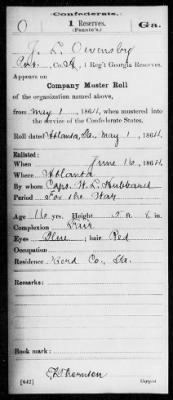 Confederate.
O 1 Reserves. Ga.
(FANNIN'S)
J. L. Owensby
Co. , 1 Reg't Georgia Reserves.
Appears on
Company Muster Roll
of the organization named above,
from May 1, 1864, when mustered into
the service of the Confederate States.
Roll dated Atlanta, Ga. May 1, 1864.
Enlisted:
When June 16, 1864.
Where Atlanta
By whom Capt. W. L. Hubbard
Period For the War
Age 16 years. Height 5 ft. 6 in.
Complexion Fair
Eyes Blue; hair Red
Occupation
Residence Co., Ga.
Remarks:
Book mark:
(642) Copyist